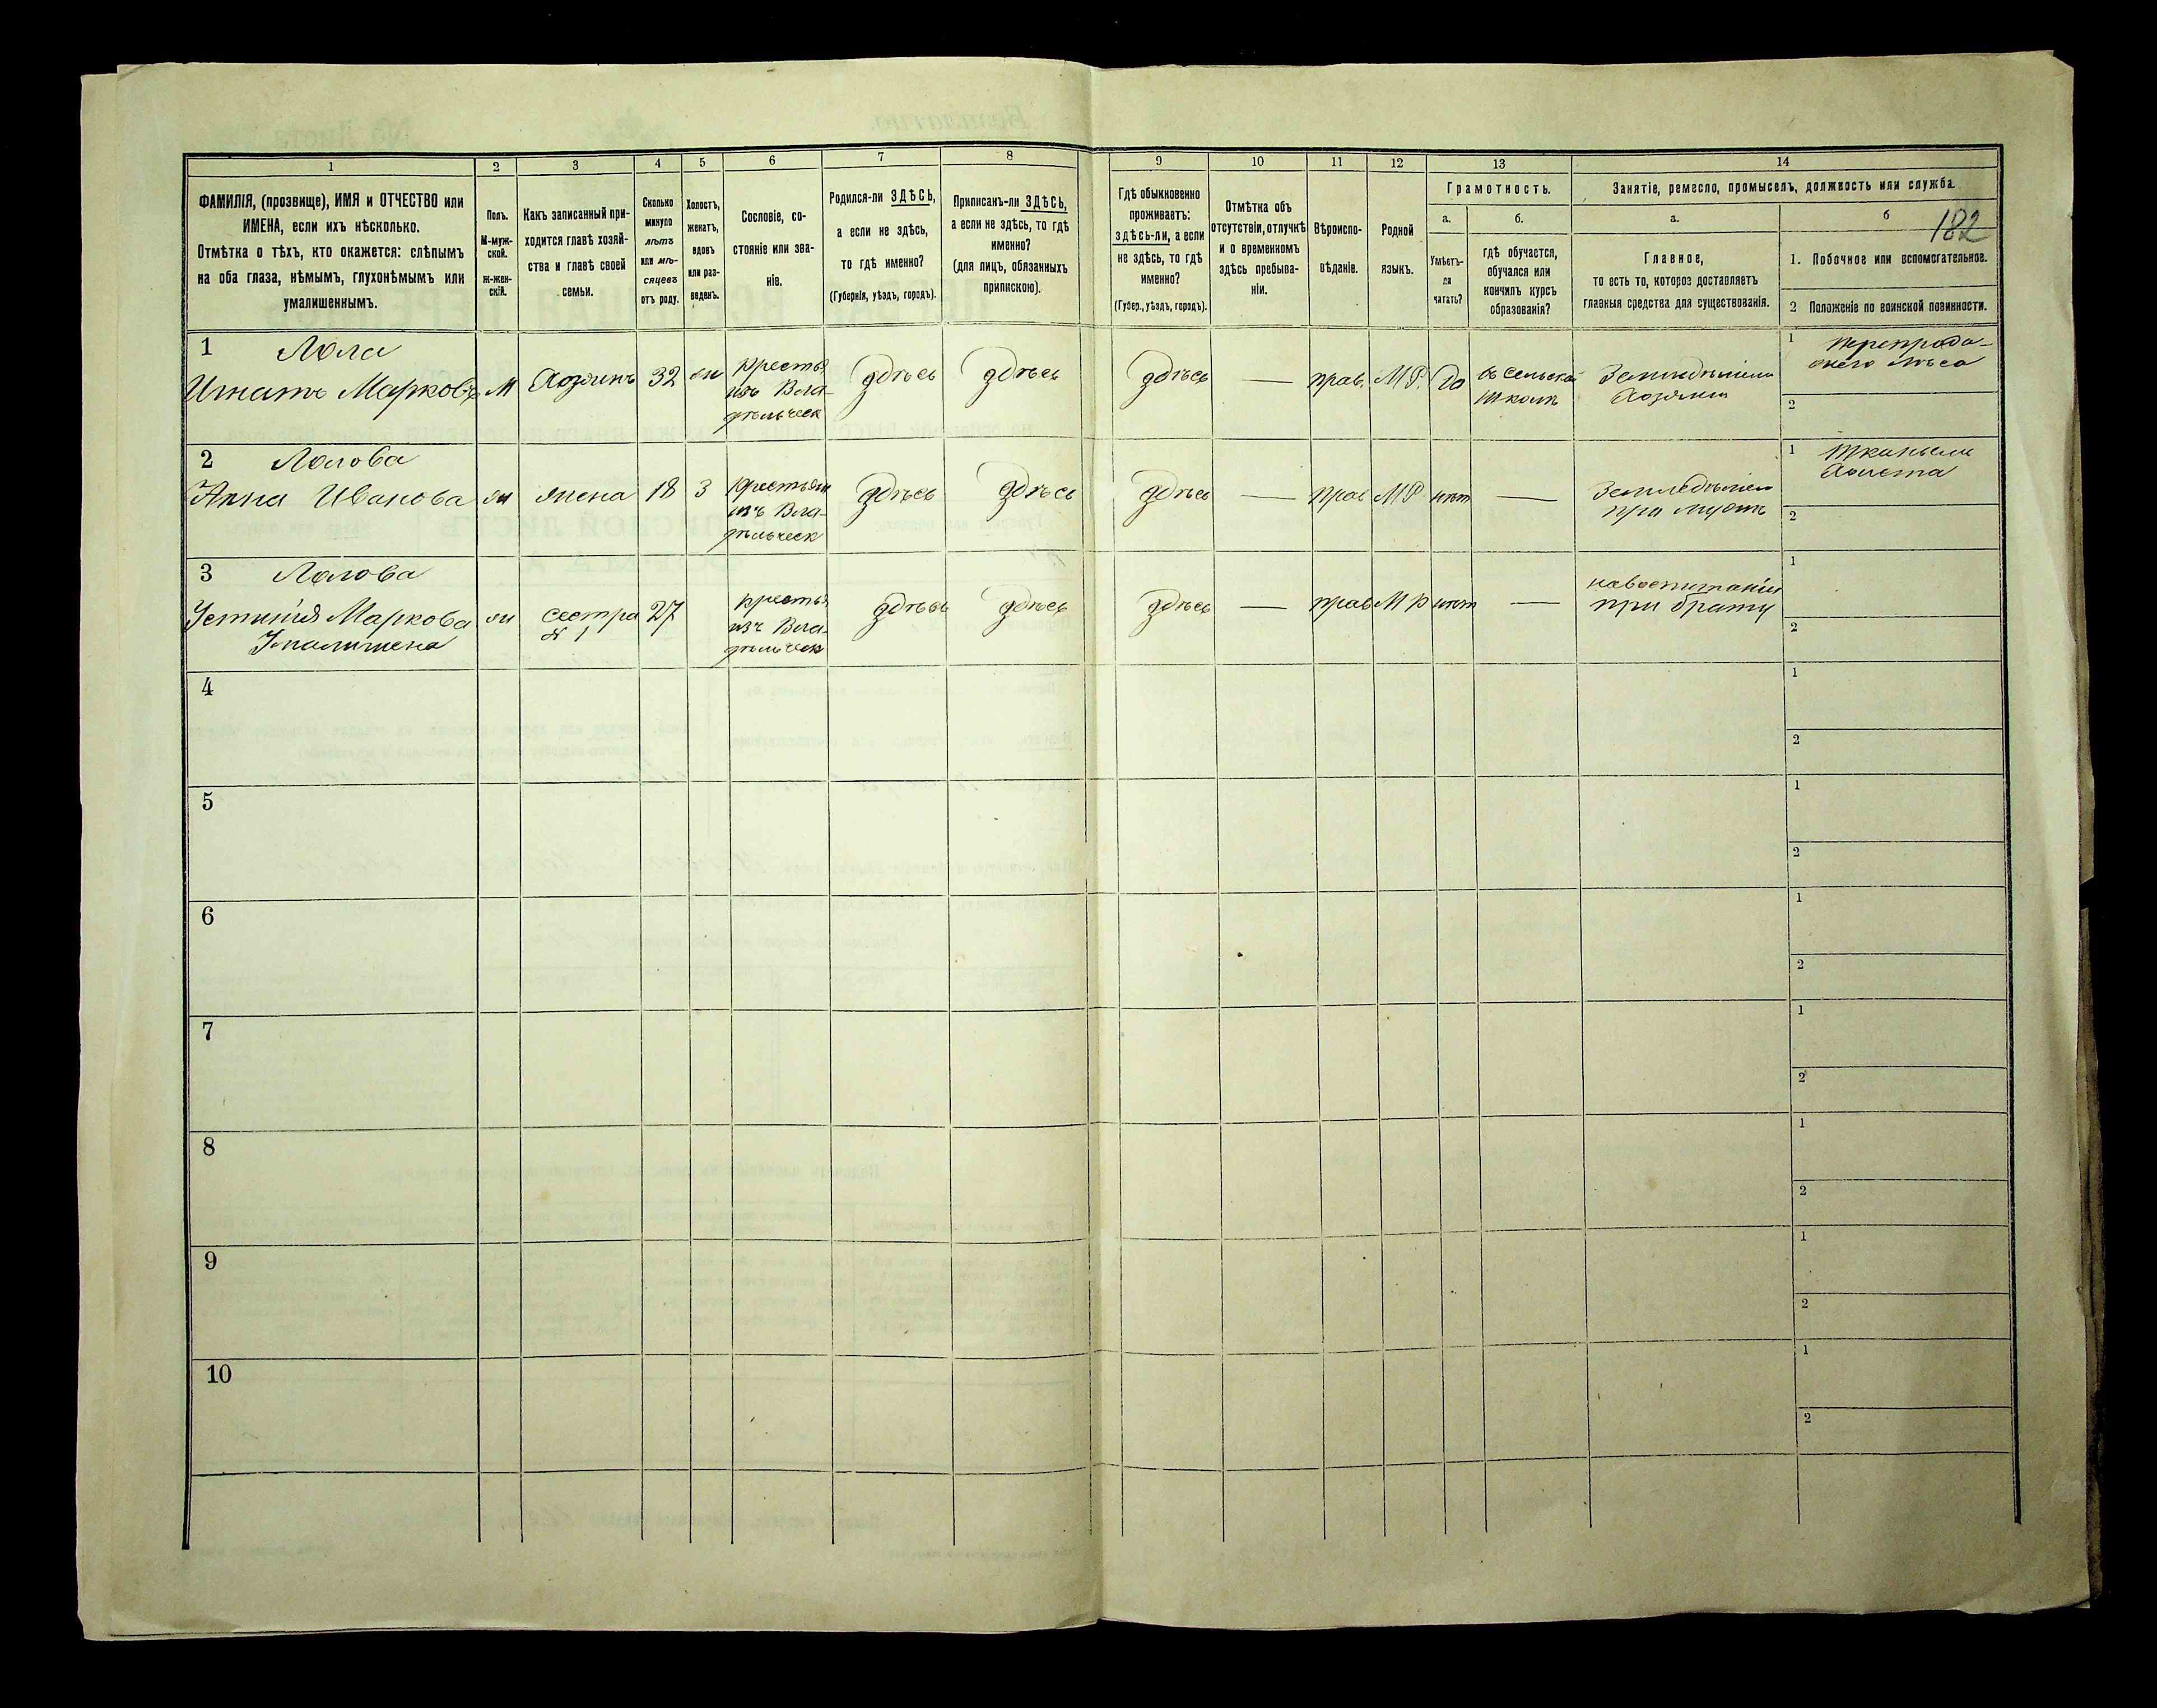 1
2
3
4
5
6
7
8
9
10
11
12
13
14
ФАМИЛІЯ, (прозвище), ИМЯ и ОТЧЕСТВО или
ИМЕНА, если ихъ нѣсколько.
Отмѣтка о тѣхъ, кто окажется: слѣпымъ
на оба глаза, нѣмымъ, глухонѣмымъ или
умалишеннымъ.
Полъ.
М-муж-
ской.
ж-жен-
скій.
Какъ записанный при-
ходится главѣ хозяй-
ства и главѣ своей
семьи.
Сколько
минуло
лѣтъ
или мѣ-
сяцевъ
отъ роду.
Холостъ,
женатъ,
вдовъ
или раз-
веденъ.
Сословіе, со-
стояніе или зва-
ніе.
Родился-ли ЗДѢСЬ,
а если не здѣсь,
то гдѣ именно?
(Губернія, уѣздъ, городъ).
Приписанъ-ли ЗДѢСЬ,
а если не здѣсь, то гдѣ
именно?
(для лицъ, обязанныхъ
припискою).
Гдѣ обыкновенно
проживаетъ:
здѣсь-ли, а если
не здѣсь, то гдѣ
именно?
(Губер., уѣздъ, городъ).
Отмѣтка объ
отсутствіи, отлучкѣ
и о временномъ
здѣсь пребыва-
ніи.
Вѣроиспо-
вѣданіе.
Родной
языкъ.
Грамотность.
а.
б.
Умѣетъ-
ли
читать?
гдѣ обучается,
обучался или
кончилъ курсъ
образованія?
Занятіе, ремесло, промыселъ, должность или служба.
а.
б
182
Главное,
то есть то, которое доставляетъ
главныя средства для существованія.
1. Побочное или вспомогательное.
2 Положеніе по воинской повинности.
1 Лола
Игнатъ Марковъ
М
Хозяинъ
32
ж
крестья
изъ Вла-
дѣльческ
здѣсь
здѣсь
здѣсь
—
прав.
М Р.
Да
въ сельской
школѣ
Земледѣліемъ
Хозяинъ
1 перепрода-
жего лѣса
2
2 Лолова
Анна Иванова
ж
жена
18
З
крестьян
изъ Вла-
дѣльческ
здѣсь
здѣсь
здѣсь
—
прав
М Р
нѣт
—
Земледѣліем
при мужѣ
1 тканьем
Холста
2
3 Лолова
Устинія Маркова
Умалишена
ж
сестра
№ 1
27
крестья
изъ Вла-
дѣльческ
здѣсь
здѣсь
здѣсь
—
прав
М Р
нѣт
—
на воспитаніи
при брату
1
2
4
1
2
5
1
2
6
1
2
7
1
2
8
1
2
9
1
2
10
1
2